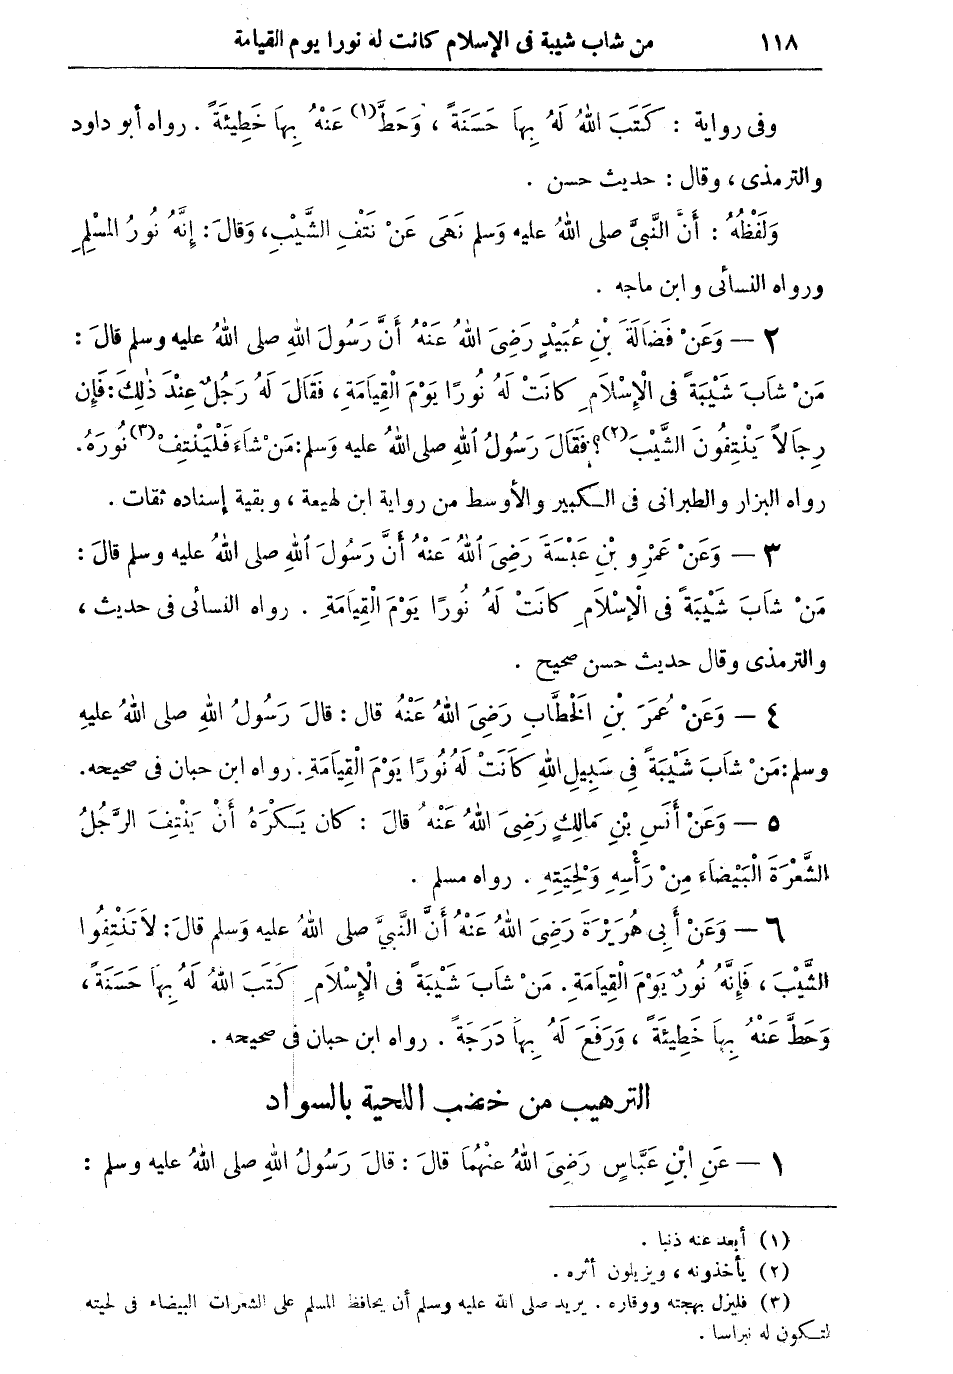 ١١٨ من شاب شيبة فى الإسلام كانت له نورا يوم القيامة
وفى رواية : كَتَبَ اللهُ لَهُ بِهَا حَسَنَةً ، وَحَطَّ(١) عَنْهُ بِهَا خَطِيئَةً . رواه أبو داود
والترمذى ، وقال : حديث حسن .
وَلَفْظُهُ : أَنَّ النَّبِىَّ صلى اللهُ عليه وَسلم نَهَى عَنْ نَتْفِ الشَّيْبِ، وَقَالَ : إِنَّهُ نُورُ المُسْلِمِ
ورواه النسائى وابن ماجه .
٢ — وَعَنْ فَضَالَةَ بْنِ عُبَيْدٍ رَضِىَ اللهُ عَنْهُ أَنَّ رَسُولَ اللهِ صلى اللهُ عليه وسلم قَالَ :
مَنْ شَابَ شَيْبَةً فى الْإِسْلَامِ كَانَتْ لَهُ نُورًا يَوْمَ الْقِيَامَةِ، فَقَالَ لَهُ رَجُلٌ عِنْدَ ذٰلِكَ: فَإِن
رِجَالاً يَنْتِفُونَ الشَّيْبَ(٢)؟ فَقَالَ رَسُولُ اللهِ صلى اللهُ عليه وَسلم: مَنْ شَاءَ فَلْيَنْتِفْ(٣) نُورَهُ.
رواه البزار والطبرانى فى الكبير والأوسط من رواية ابن لهيعة ، وبقية إسناده ثقات .
٣ — وَعَنْ عَمْرِو بْنِ عَبْسَةَ رَضِىَ اللهُ عَنْهُ أَنَّ رَسُولَ اللهِ صلى اللهُ عليه وسلم قَالَ :
مَنْ شَابَ شَيْبَةً فى الْإِسْلَامِ كَانَتْ لَهُ نُورًا يَوْمَ الْقِيَامَةِ . رواه النسائى فى حديث ،
والترمذى وقال حديث حسن صحيح .
٤ — وَعَنْ عُمَرَ بْنِ الْخَطَّابِ رَضِىَ اللهُ عَنْهُ قال : قَالَ رَسُولُ اللهِ صلى اللهُ عليه
وسلم: مَنْ شَابَ شَيْبَةً فِى سَبِيلِ اللهِ كَانَتْ لَهُ نُورًا يَوْمَ الْقِيَامَةِ. رواه ابن حبان فى صحيحه.
٥ — وَعَنْ أَنَسِ بْنِ مَالِكٍ رَضِىَ اللهُ عَنْهُ قَالَ : كان يَكْرَهُ أَنْ يَنْتِفَ الرَّجُلُ
الشَّعْرَةَ الْبَيْضَاءَ مِنْ رَأْسِهِ وَلِحْيَتِهِ . رواه مسلم .
٦ — وَعَنْ أَبِى هُرَيْرَةَ رَضِىَ اللهُ عَنْهُ أَنَّ النَّبِىَّ صلى اللهُ عليه وَسلم قَالَ : لَا تَنْتِفُوا
الشَّيْبَ ، فَإِنَّهُ نُورٌ يَوْمَ الْقِيَامَةِ. مَنْ شَابَ شَيْبَةً فى الْإِسْلَامِ كَتَبَ اللهُ لَهُ بِهَا حَسَنَةً ،
وَحَطَّ عَنْهُ بِهَا خَطِيئَةً ، وَرَفَعَ لَهُ بِهَا دَرَجَةً . رواه ابن حبان فى صحيحه .
الترهيب من خضب اللحية بالسواد
١ — عَنِ ابْنِ عَبَّاسٍ رَضِىَ اللهُ عَنْهُمَا قَالَ : قَالَ رَسُولُ اللهِ صلى اللهُ عليه وسلم :
(١) أبعد عنه ذنبا .
(٢) يأخذونه ، ويزيلون أثره .
(٣) فليزل بهجته ووقاره . يريد صلى الله عليه وسلم أن يحافظ المسلم على الشعرات البيضاء فى لحيته
لتكون له نبراسا .